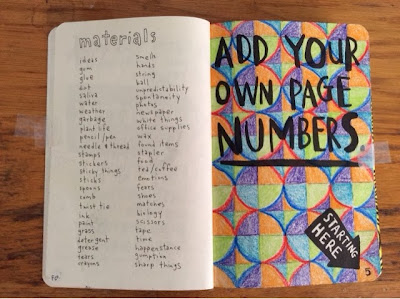 materials
ideas
gum
glue
dirt
saliva
water
weather
garbage
plant life
pencil/pen
needle & thread
stamps
stickers
sticky things
sticks
spoons
comb
twist tie
ink
paint
grass
detergent
grease
tears
crayons
smells
hands
string
ball
unpredictability
spontaneity
photos
newspaper
white things
office supplies
wax
found items
stapler
food
tea/coffee
emotions
fears
shoes
matches
biology
scissors
tape
time
happenstance
gumption
sharp things
ADD YOUR
OWN PAGE
NUMBERS.
STARTING
HERE
5